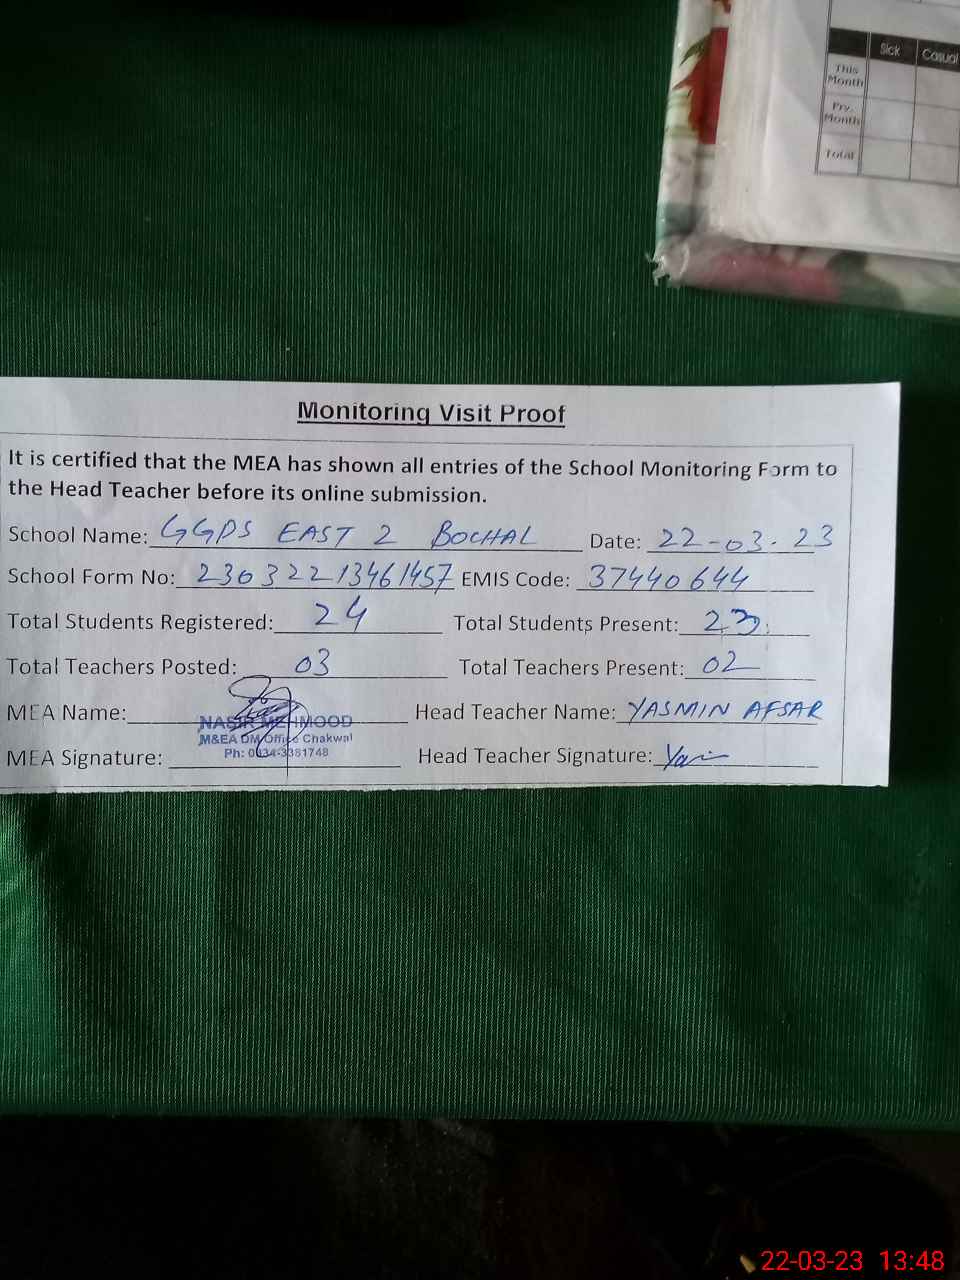 Sick Casual
This Month
Prv. Month
Total
Monitoring Visit Proof
It is certified that the MEA has shown all entries of the School Monitoring Form to
the Head Teacher before its online submission.
School Name: GGPS EAST 2 BOCHAL Date: 22-03-23
School Form No: 23032213461457 EMIS Code: 37440644
Total Students Registered: 24 Total Students Present: 23
Total Teachers Posted: 03 Total Teachers Present: 02
MEA Name: NASIR MEHMOOD Head Teacher Name: YASMIN AFSAR
M&EA DM Office Chakwal
Ph: 0334-3381748
MEA Signature: Head Teacher Signature:
22-03-23 13:48